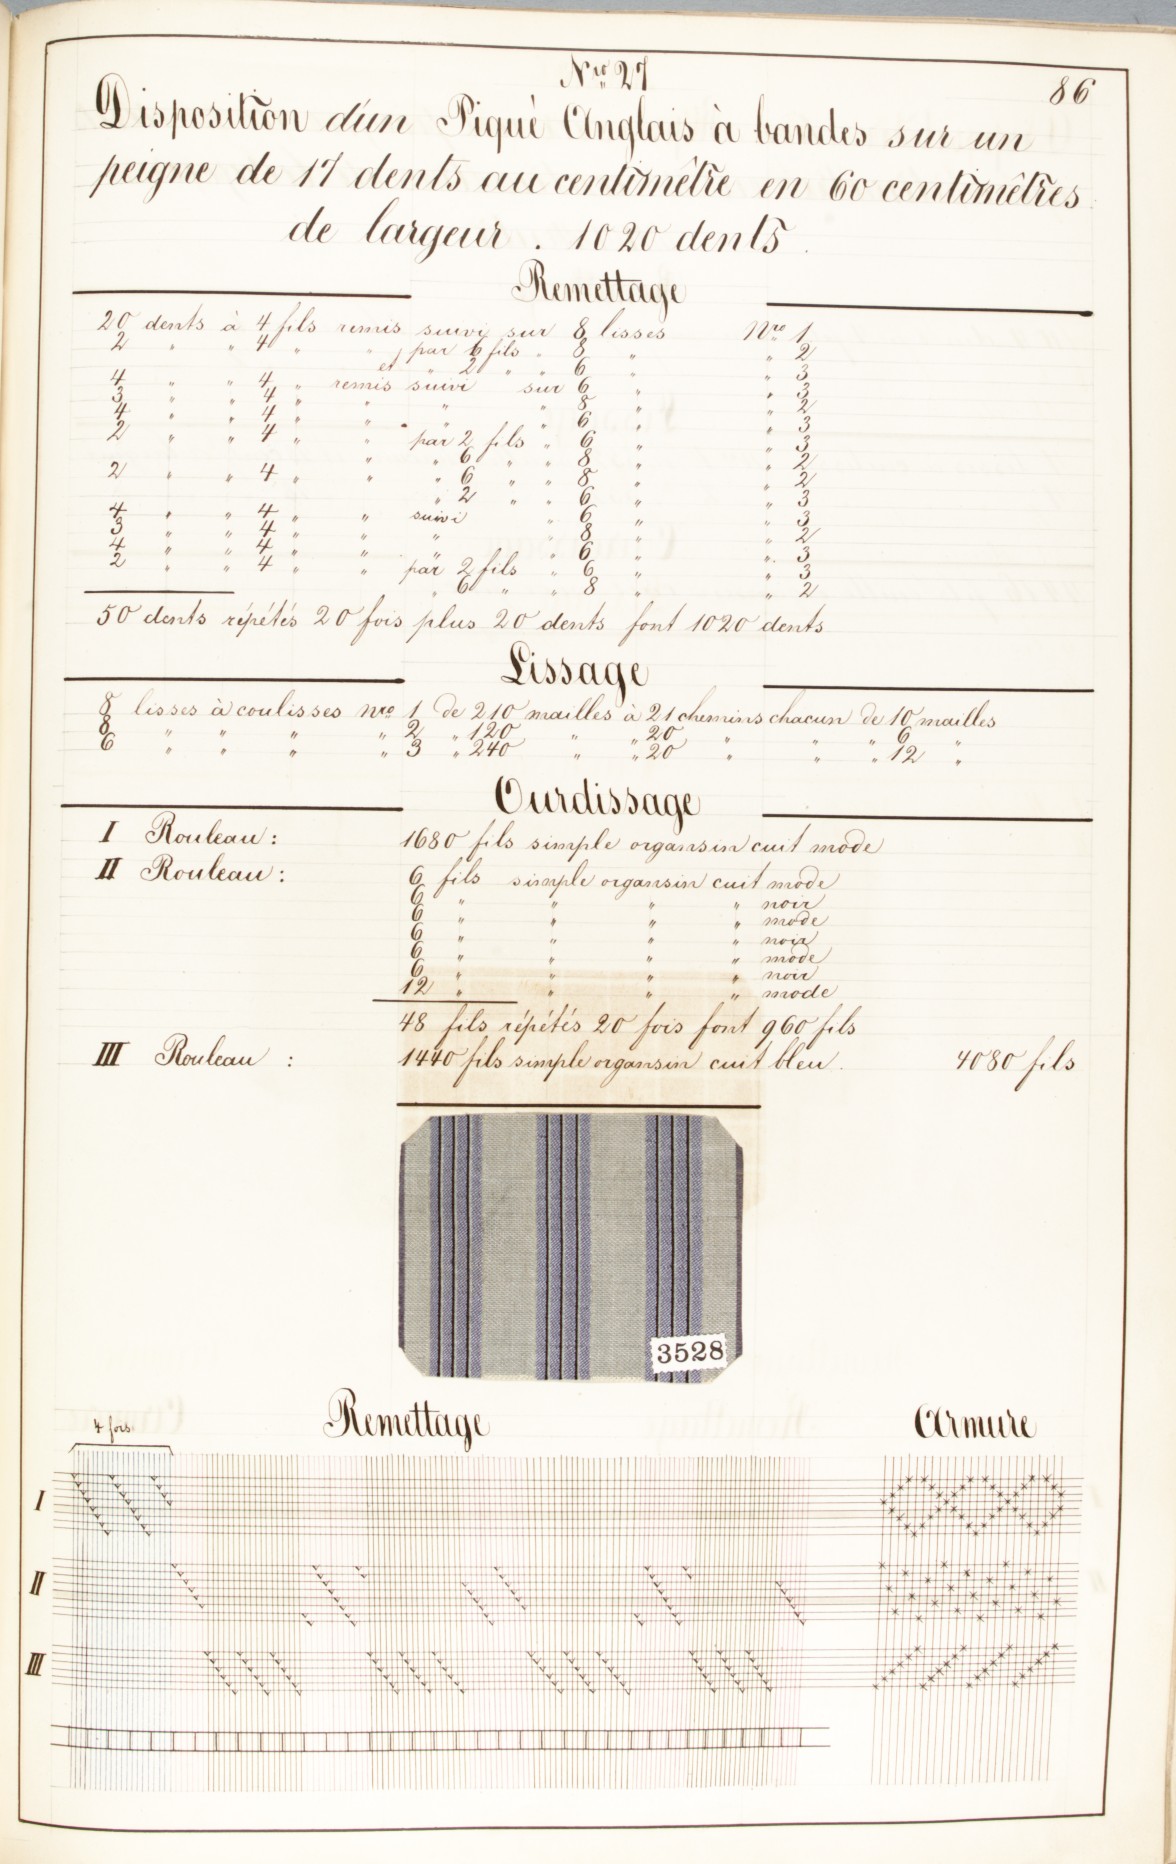 Nro 27
86
Disposition d'un Piqué Anglais à bandes sur un
peigne de 17 dents au centimêtre en 60 centimêtres
de largeur. 1020 dents.
Remettage
20 dents à 4 fils remis suivi sur 8 lisses Nro 1
2 " " 4 " " par 6 fils " 8 " " 2
et " 2 " " 6 " " 3
4 " " 4 " remis suivi sur 6 " " 3
3 " " 4 " " " " 8 " " 2
4 " " 4 " " " " 6 " " 3
2 " " 4 " " par 2 fils " 6 " " 3
" " 6 " " 8 " " 2
2 " " 4 " " " 6 " " 8 " " 2
" 2 " " 6 " " 3
4 " " 4 " " suivi " 6 " " 3
3 " " 4 " " " " 8 " " 2
4 " " 4 " " " " 6 " " 3
2 " " 4 " " par 2 fils " 6 " " 3
" 6 " " 8 " " 2
50 dents répétés 20 fois plus 20 dents font 1020 dents
Lissage
8 lisses à coulisses nro 1 de 210 mailles à 21 chemins chacun de 10 mailles
8 " " " " 2 " 120 " " 20 " " " 6 "
6 " " " " 3 " 240 " " 20 " " " 12 "
Ourdissage
I Rouleau : 1680 fils simple organsin cuit mode
II Rouleau : 6 fils simple organsin cuit mode
6 " " " " noir
6 " " " " mode
6 " " " " noir
6 " " " " mode
6 " " " " noir
12 " " " " mode
48 fils répétés 20 fois font 960 fils
III Rouleau : 1440 fils simple organsin cuit bleu. 4080 fils
3528
4 fois
Remettage
Armure
I
II
III